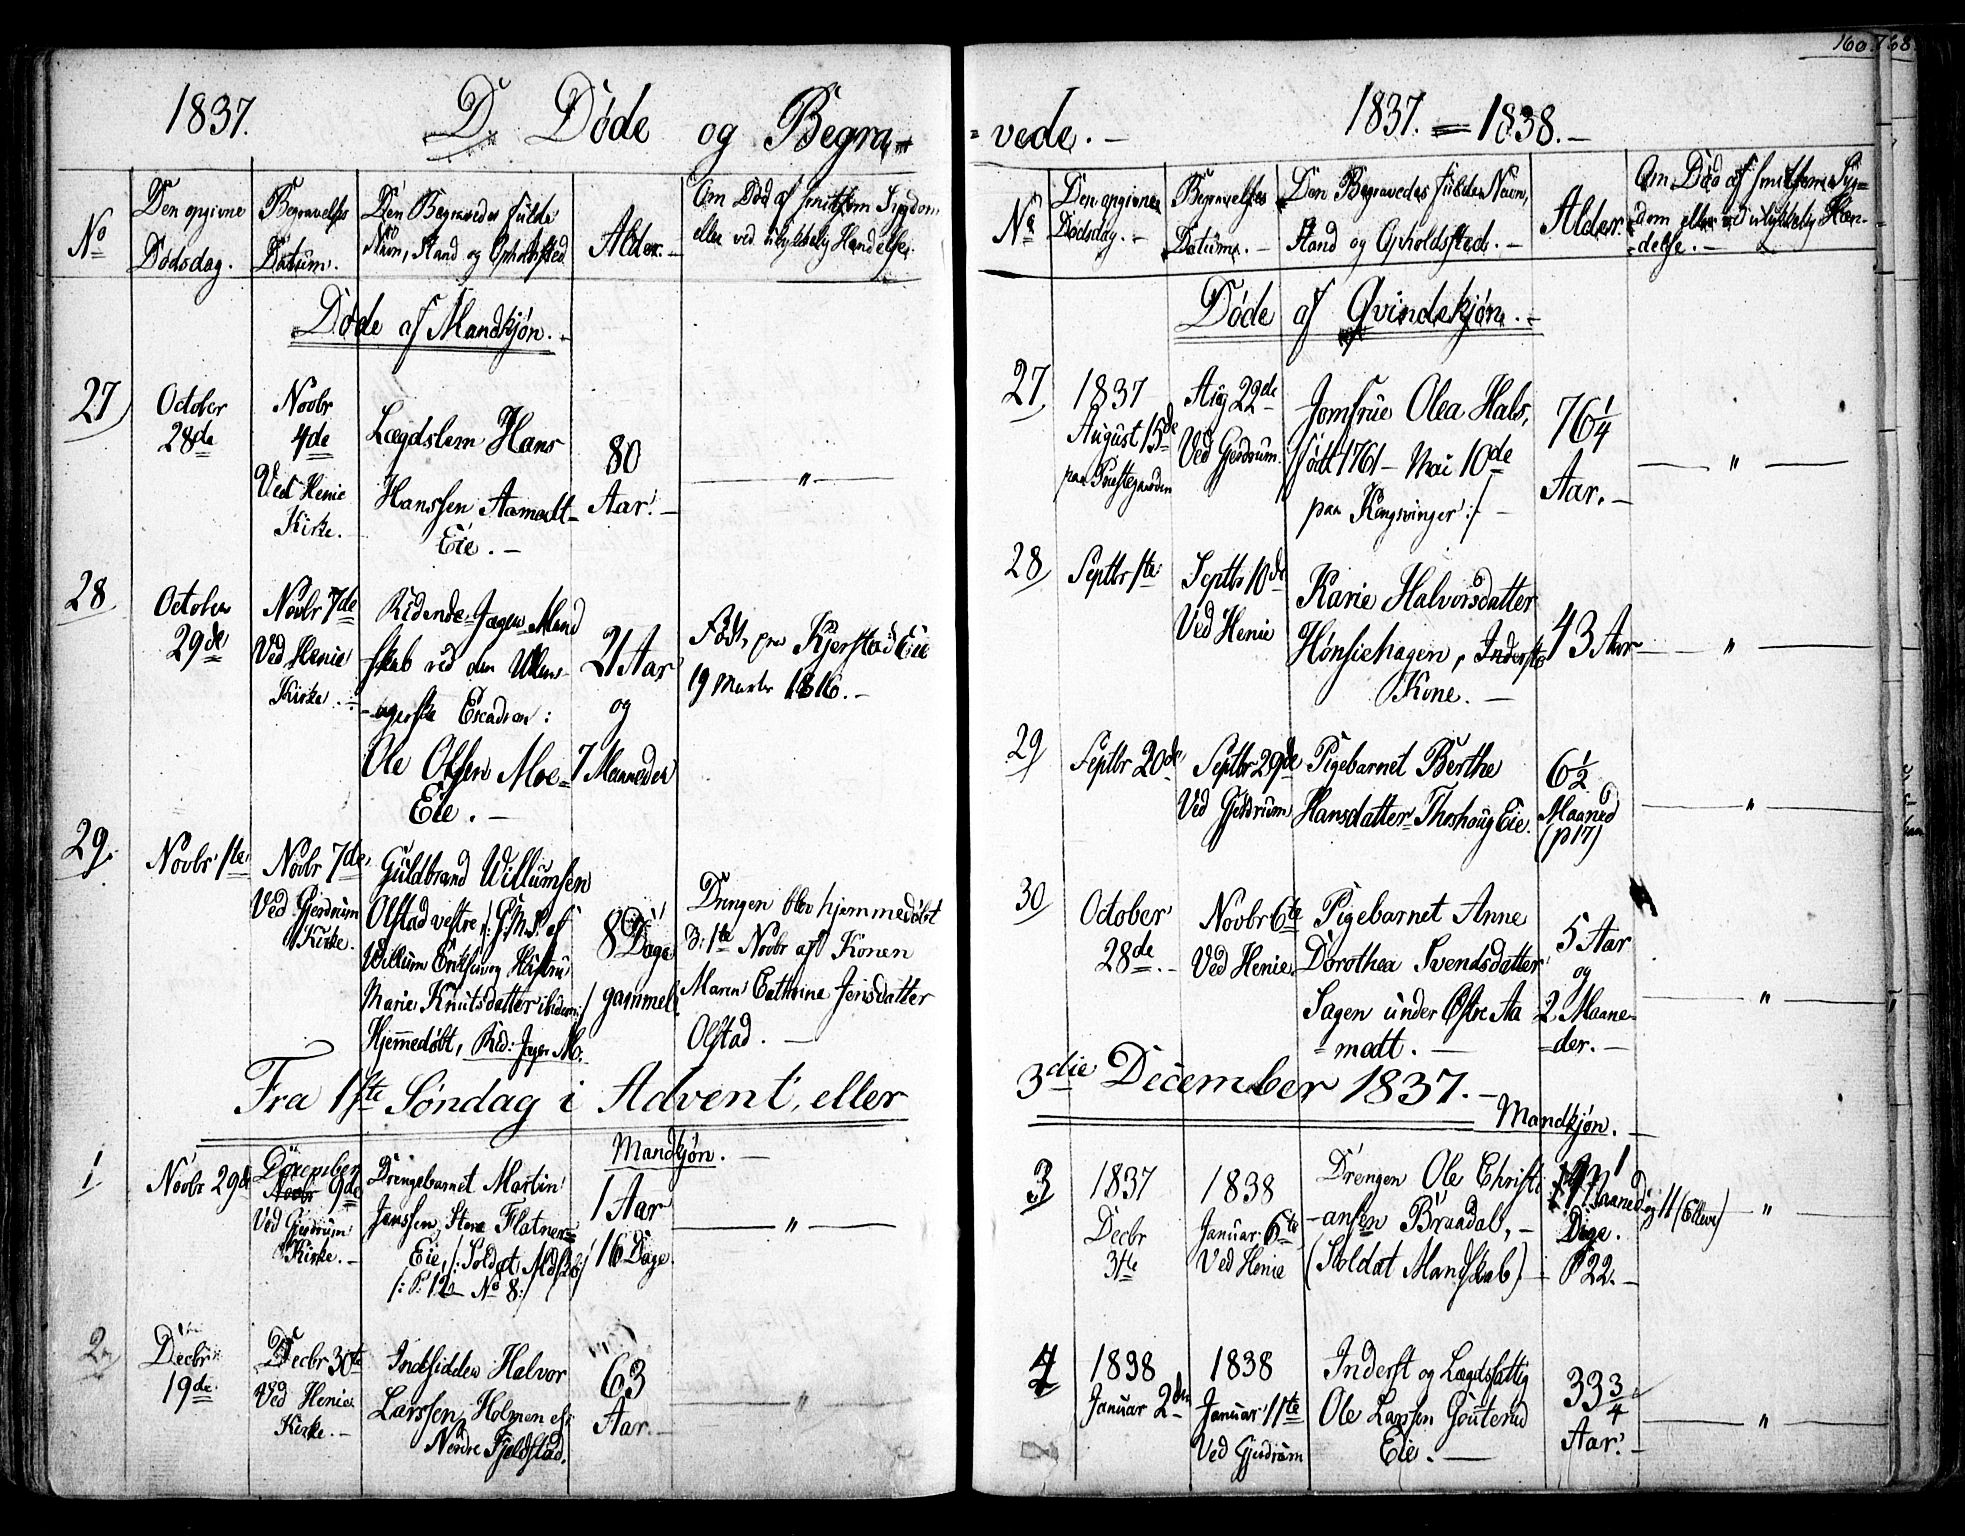 1837.
D. Døde og Begra-
No
Den opgivne
Dødsdag.
Begravelses
Datum.
Den Begravedes fulde
Navn, Stand og Opholdssted
Alder.
Om Død af smitsom Sygdom
eller ved ulykkelig Handelse.
Døde af Mandkjøn.
27
October
28de
Novbr
4de
Ved Henie
Kirke.
Lægdslem Hans
Hanssen Aamodt-
Eie.
80
Aar.
"
28
October
29de
Novbr 7de
Ved Henie
Kirke.
Ridende-Jæger Mand
skab ved den Ullens-
-agerske Escadron:
Ole Olsen Moe-
Eie.
21 Aar
og
7 Maaneder
Født paa Kjerstad Eie
19 Marts 1816.
29.
Novbr 1ste
Novbr 7de
Ved Gjerdrum
Kirke.
Guldbrand Willumsen
Olstad vestre
Willum Eriksen og Hustru
Marie Knutsdatter ibidem:/
Hjemmedøbt, Rid: Jæger M.
8 Dage
gammel.
Drengen blev hjemmedøbt
3: 1ste Novbr af Konen
Maren Cathrine Jensdatter
Olstad.
Fra 1ste Søndag i Advent, eller
Mandkjøn.
1
Novbr 29de
December
Novbr 9de
Ved Gjerdrum
Kirke.
Drengebarnet Martin
Janssen, Store Flatner=
Eie, /: Soldat
/: P: 12 No 8:/
1 Aar
16 Dage.
"
2
Decbr
19de
Decbr 30te
Ved Henie
Kirke.
Indsidder Halvor
Larssen Holmen
Nordre Fjeldstad.
63
Aar.
"
160. 168
= vede.
1837. = 1838.
No
Den opgivne
Dødsdag.
Begravelses
Datum.
Den Begravedes fulde Navn,
Stand og Opholdssted.
Alder.
Om Død af smitsom Syg=
=dom eller ved ulykkelig Hæn-
=delse.
Døde af Qvindekjøn.
27
1837
August 15de
paa Prestegaarden
Aug 22de
Ved Gjerdrum
Jomfrue Olea Hals,
/født 1761 - Mai 10de
paa Kongsvinger:/
76 1/4
Aar.
"
28
Septbr 1ste
Septbr 10de
Ved Henie
Karie Halvorsdatter
Hønsiehagen, Inderste
Kone.
43 Aar
"
29
Septbr 20de
Septbr 29de
Ved Gjerdrum
Pigebarnet Berthe
Hansdatter Thoshoug Eie.
6 1/2
Maaned
(p 17)
"
30
October
28de
Novbr 6te
Ved Henie
Pigebarnet Anne
Dorothea Svendsdatter
Sagen under Østre Aa
=modt.
5 Aar
og
2 Maane-
=der.
"
3die December 1837.
Mandkjøn.
3
1837
Decbr
31te
1838
Januar 6te
Ved Henie
Drengen Ole Christi
-ansen Braadal,
(Soldat Mandskab)
1 Maaned og 11 (Elleve)
Dage.
P 22.
"
4
1838
Januar 2den
1838
Januar 11te
Ved Gjerdrum
Inderst og Lægdsfattig
Ole Larssen Gouterud
Eie.
33 3/4
Aar.
"